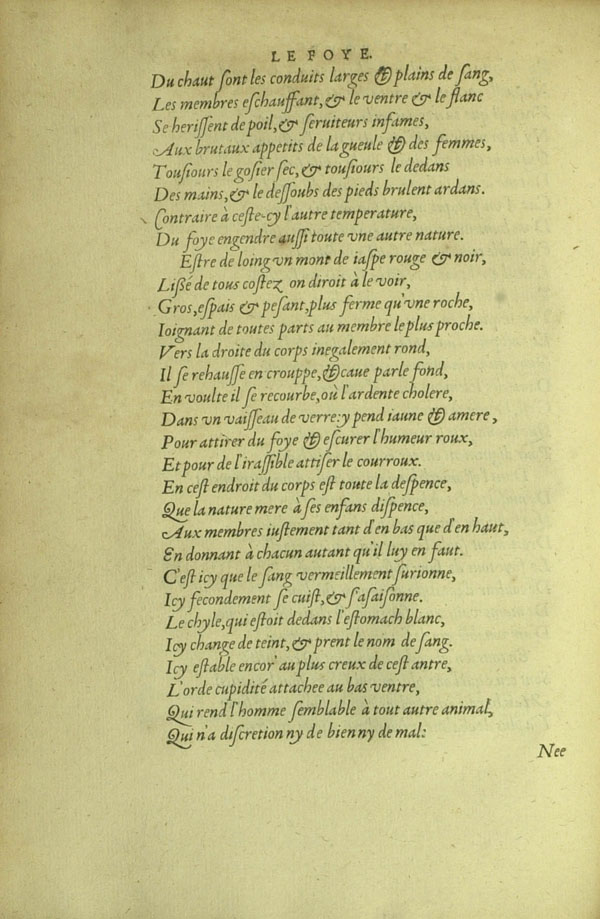 LE FOYE.
Du chaut ſont les conduits larges & plains de ſang,
Les membres eſchauffant, & le ventre & le flanc
Se heriſſent de poil, & ſeruiteurs infames,
Aux brutaux appetits de la gueule & des femmes,
Touſiours le goſier ſec, & touſiours le dedans
Des mains, & le deſſoubs des pieds brulent ardans.
Contraire à ceſte-cy l'autre temperature,
Du foye engendre auſſi toute vne autre nature.
Eſtre de loing vn mont de iaſpe rouge & noir,
Lißé de tous coſtez on diroit à le voir,
Gros, eſpais & peſant, plus ferme qu'vne roche,
Ioignant de toutes parts au membre le plus proche.
Vers la droite du corps inegalement rond,
Il ſe rehauſſe en crouppe, & caue par le fond,
En voulte il ſe recourbe, où l'ardente cholere,
Dans vn vaiſſeau de verre: y pend iaune & amere,
Pour attirer du foye & eſcurer l'humeur roux,
Et pour de l'iraſſible attiſer le courroux.
En ceſt endroit du corps eſt toute la deſpence,
Que la nature mere à ſes enfans diſpence,
Aux membres iuſtement tant d'en bas que d'en haut,
En donnant à chacun autant qu'il luy en faut.
C'eſt icy que le ſang vermeillement ſurionne,
Icy fecondement ſe cuiſt, & ſ'aſaiſonne.
Le chyle, qui eſtoit dedans l'eſtomach blanc,
Icy change de teint, & prent le nom de ſang.
Icy eſtable encor' au plus creux de ceſt antre,
L'orde cupidité attachee au bas ventre,
Qui rend l'homme ſemblable à tout autre animal,
Qui n'a diſcretion ny de bien ny de mal:
Nee